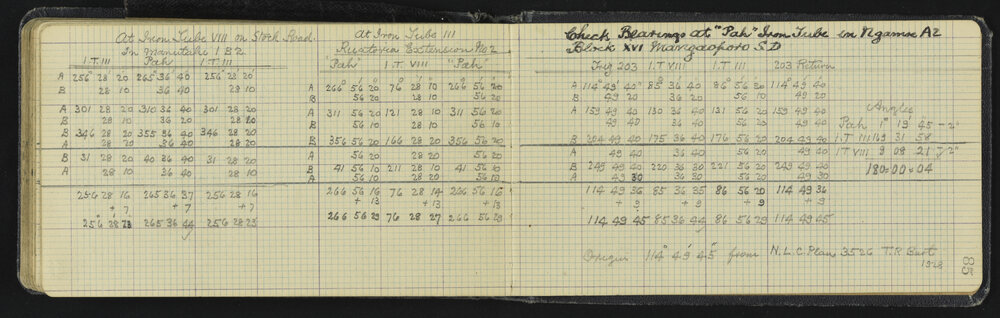 At Iron Tube VIII on Stock Road.
In Manutuki 1 B2.
I.T. III Pah I.T. III
A 256° 28' 20 265° 36' 40 256° 28' 20
B 28 10 36 40 28 10
A 301 28 20 310 36 40 301 28 20
B 28 10 36 20 28 20
B 346 28 20 355 36 40 346 28 20
A 28 20 36 40 28 20
B 31 28 20 40 36 40 31 28 20
A 28 10 36 40 28 10
256 28 16 265 36 37 256 28 16
+ 7 + 7 + 7
256° 28' 23 265 36 44 256 28 23
At Iron Tube III
Ruatoria Extension No 2
"Pah" I.T. VIII "Pah"
A 266° 56' 20 76° 28' 10 266° 56' 20
B 56 20 28 10 56 20
A 311 56 20 121 28 10 311 56 20
B 56 10 28 10 56 10
B 356 56 20 166 28 20 356 56 20
A 56 20 28 20 56 20
B 41 56 10 211 28 10 41 56 10
A 56 10 28 20 56 10
266 56 16 76 28 14 266 56 16
+ 13 + 13 + 13
266 56 29 76 28 27 266 56 29
Check Bearings at "Pah" Iron Tube in Ngamoe A2
Block XVI Mangaoporo S.D
Trig 203 I.T VIII I.T III 203 Return
A 114° 49' 40" 85° 36' 40 86° 56' 20 114° 49' 40
B 49 20 36 20 56 10 49 20
A 159 49 40 130 36 40 131 56 20 159 49 40
B 49 40 36 40 56 20 49 40
B 204 49 40 175 36 40 176 56 20 204 49 40
A 49 40 36 40 56 20 49 40
B 249 49 40 220 36 30 221 56 20 249 49 40
A 49 30 36 30 56 20 49 30
114 49 36 85 36 35 86 56 20 114 49 36
+ 9 + 9 + 9 + 9
114 49 45 85 36 44 86 56 29 114 49 45
Angles
Pah 1° 19' 45 - 2"
I.T III 169 31 58
I.T VIII 9 08 21 - 2"
180.00.04
Origin 114° 49' 45" from N.L.C. Plan 3526 T.R. Burt
1928
85